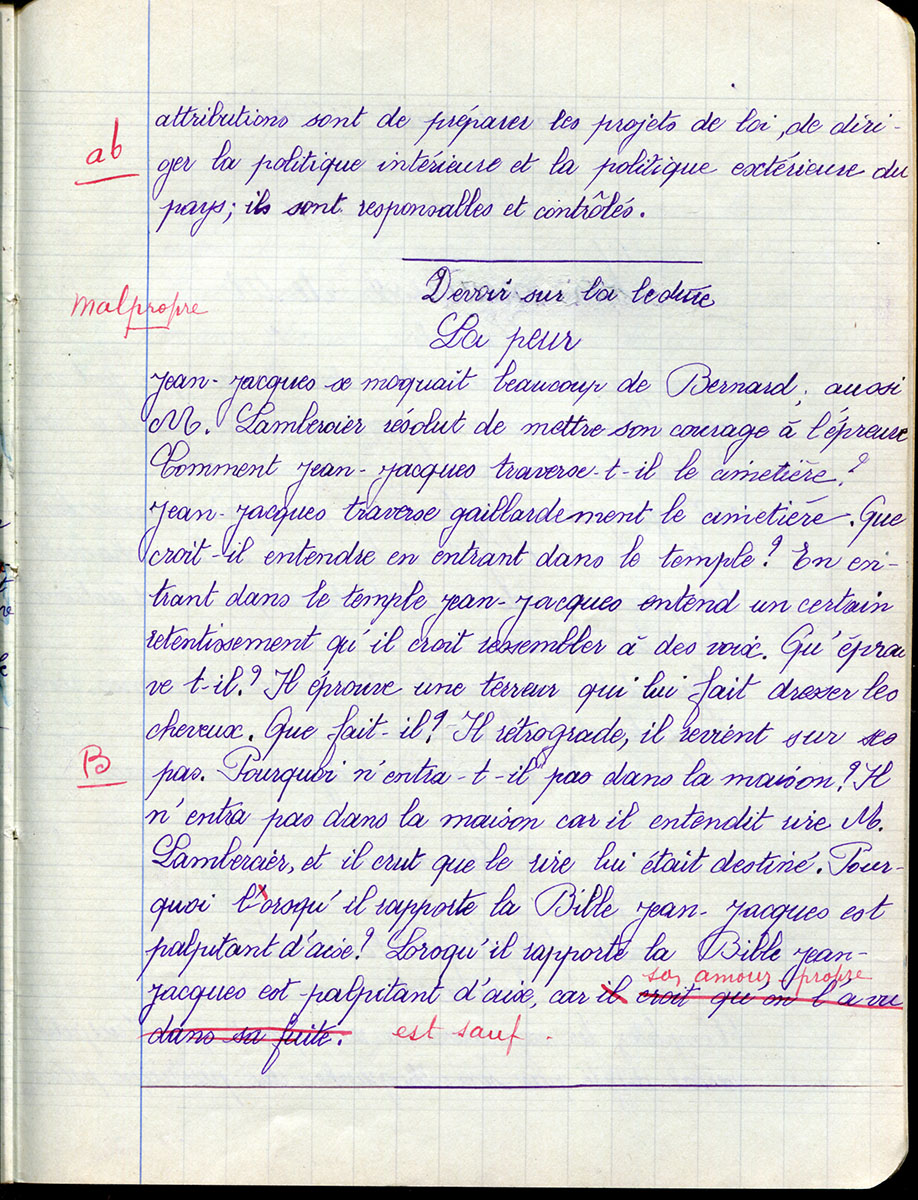 attributions sont de préparer les projets de loi, de diri-
ab
ger la politique intérieure et la politique extérieure du
pays; ils sont responsables et contrôlés.
Devoir sur la lecture
malpropre
La peur
Jean-Jacques se moquait beaucoup de Bernard; aussi
M. Lambercier résolut de mettre son courage à l'épreuve
Comment Jean-Jacques traverse-t-il le cimetière?
Jean-Jacques traverse gaillardement le cimetière. Que
croit-il entendre en entrant dans le temple? En en-
trant dans le temple Jean-Jacques entend un certain
retentissement qu'il croit ressembler à des voix. Qu'éprou
ve t-il? Il éprouve une terreur qui lui fait dresser les
cheveux. Que fait-il? Il rétrograde, il revient sur ses
B
pas. Pourquoi n'entra-t-il pas dans la maison? Il
n'entra pas dans la maison car il entendit rire M.
Lambercier, et il crut que le rire lui était destiné. Pour-
quoi l'orsqu'il rapporte la Bible Jean-Jacques est
palpitant d'aise? Lorsqu'il rapporte la Bible Jean-
son amour propre
Jacques est palpitant d'aise, car il croit qu'on l'a vu
dans sa fuite. est sauf.